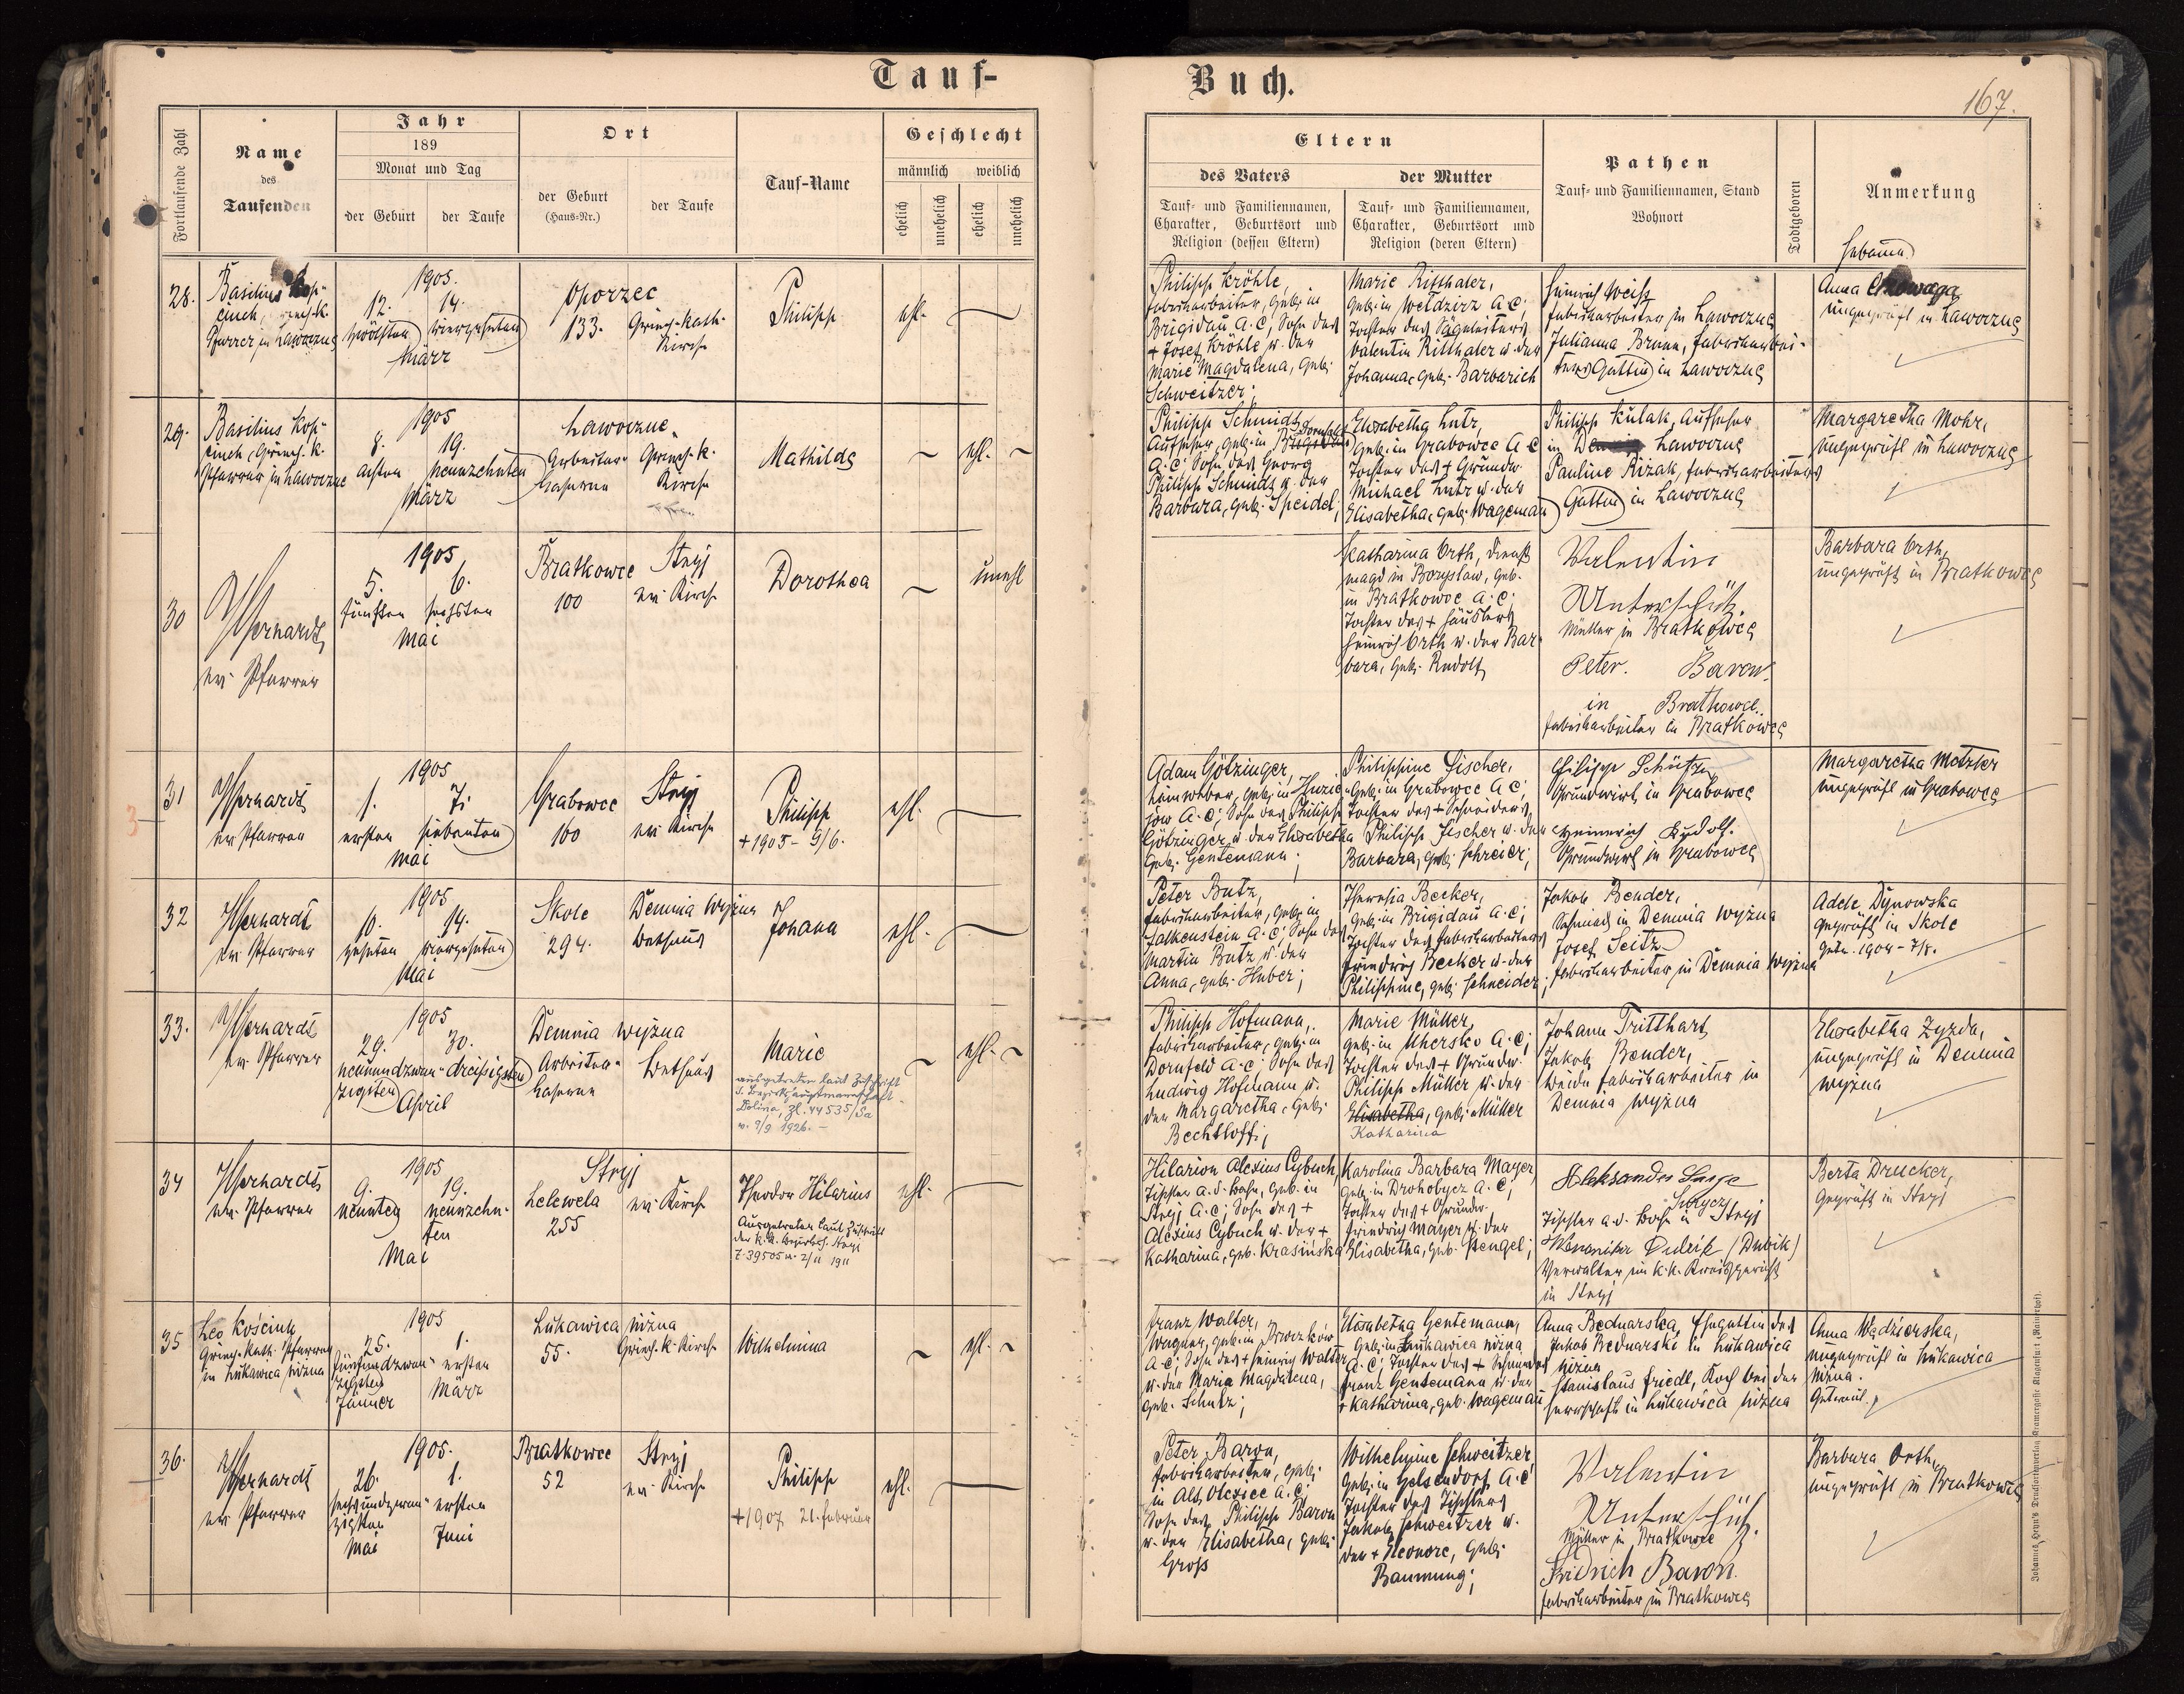 Tauf-
Buch.
167.
Fortlaufende Zahl
Name
des
Taufenden
Jahr
189
Monat und Tag
der Geburt
der Taufe
Ort
der Geburt
(Haus-Nr.)
der Taufe
Tauf-Name
Geschlecht
männlich weiblich
ehelich
unehelich
ehelich
unehelich
Eltern
des Vaters
Tauf- und Familiennamen,
Charakter, Geburtsort und
Religion (dessen Eltern)
der Mutter
Tauf- und Familiennamen,
Charakter, Geburtsort und
Religion (deren Eltern)
Pathen
Tauf- und Familiennamen, Stand
Wohnort
Todtgeboren
Anmerkung
Hebamme
28.
Basilius Kop-
ciuch, griech. k.
Pfarrer in Lawoczne
1905.
12. 14.
zwölften vierzehnten
März
Oporzec
133. Griech. kath.
Kirche
Philipp
ehl.
Philipp Kröhle,
Fabriksarbeiter, geb. in
Brigidau A.C., Sohn des
+ Josef Kröhle u. der
Marie Magdalena, geb.
Schweitzer;
Marie Ritthaler,
geb. in Weldzirz A.C.,
Tochter des Sägeleiters
Valentin Ritthaler u. der
Johanna, geb. Barbarich
Heinrich Weiß
Fabriksarbeiter in Lawoczne
Julianna Braun, Fabriksarbei-
ters Gattin in Lawoczne
Anna
ungeprüft in Lawoczne
29.
Basilius Kop-
ciuch, Griech. k.
Pfarrer in Lawoczne
1905
8. 19.
achten neunzehnten
März
Lawoczne
Arbeiter- Griech. k.
kaserne Kirche
Mathilde
ehl.
Philipp Schmidt,
Aufseher, geb. in Dornfeld
A.C., Sohn des Georg
Philipp Schmidt u. der
Barbara, geb. Speidel;
Elisabetha Lutz,
geb. in Grabowce A.C.
Tochter des + Grundw.
Michael Lutz u. der
Elisabetha, geb. Wageman
Philipp Kulak, Aufseher
in Lawoczne
Pauline Rizak, Fabriksarbeiters
Gattin in Lawoczne
Margaretha Mohr,
ungeprüft in Lawoczne
30
Gerhardt
ev. Pfarrer
1905
5. 6.
fünften sechsten
Mai
Bratkowce Stryj
100 ev. Kirche
Dorothea
unehl
Katharina Orth, Dienst
magd in Boryslaw, geb.
in Bratkowce A.C.,
Tochter des + Häuslers
Heinrich Orth u. der Bar-
bara, geb. Rudolf
Valentin
Unterschütz.
Müller in Bratkowce
Peter. Baron.
in Bratkowce.
Fabriksarbeiter in Bratkowce
Barbara Orth,
ungeprüft in Bratkowce
31
Gerhardt
ev. Pfarrer
1905
1. 7.
ersten siebenten
Mai
Grabowce Stryj
100 ev. Kirche
Philipp
+ 1905 - 9/6.
ehl.
Adam Götzinger,
Leinweber, geb. in Huzie-
jow A.C., Sohn des Philipp
Götzinger u. der Elisabetha
geb. Gentemann;
Philippine Fischer,
geb. in Grabowce A.C.,
Tochter des + Schneiders
Philipp Fischer u. der
Barbara, geb. Schreier;
Filipp Schütz
Grundwirt in Grabowce
Heinrich Rudolf.
Grundwirt in Grabowce
Margaretha Metzler
ungeprüft in Grabowce
32
Gerhardt
ev. Pfarrer
1905
10. 14.
zehnten vierzehnten
Mai
Skole Demnia Wyżna
294. Bethaus
Johana
ehl.
Peter Butz,
Fabriksarbeiter, geb. in
Falkenstein A.C., Sohn des
Martin Butz u. der
Anna, geb. Huber;
Theresia Becker,
geb. in Brigidau A.C.,
Tochter des Fabriksarbeiters
Friedrich Becker u. der
Philippine, geb. Schneider;
Jakob Bender,
Schmied in Demnia Wyżna
Josef Seitz
Fabriksarbeiter in Demnia Wyżna
Adele Dynowska
geprüft in Skole
Getr. 1904 - 7/8.
33.
Gerhardt
ev. Pfarrer
1905
29. 30.
neunundzwan- dreißigsten
zigsten April
Demnia wyżna
Arbeiter- Bethaus
kaserne
Marie
ausgetreten laut Zuschrift
d. Bezirkshauptmannschaft
Dolina, Zl. 44535/5a
v. 9/9 1926. -
ehl.
Philipp Hofmann,
Fabriksarbeiter, geb. in
Dornfeld A.C., Sohn des
Ludwig Hofmann u.
der Margaretha, geb.
Bechtloff;
Marie Müller,
geb. in Uhersko A.C.,
Tochter des + Grundw.
Philipp Müller u. der
Elisabetha, geb. Müller
Katharina
Johann Tritthart
Jakob Bender,
beide Fabriksarbeiter in
Demnia wyżna
Elisabetha Zyzda,
ungeprüft in Demnia
wyżna
34
Gerhardt
ev. Pfarrer
1905
9. 19.
neunten neunzehn-
ten
Mai
Stryj
Lelewela ev. Kirche
255
Theodor Hilarius
Ausgetreten laut Zuschrift
der k.k. Bezirksh. Stryj
Z. 39505 v. 2/11 1911
ehl.
Hilarion Alexius Cybuch,
Tischler a.d. Bahn, geb. in
Stryj A.C., Sohn des +
Alexius Cybuch u. der +
Katharina, geb. Krasińska
Karolina Barbara Mayer,
geb. in Drohobycz A.C.,
Tochter des + Grundw.
Friedrich Mayer u. der
Elisabetha, geb. Pengel;
Aleksander
Tischler a.d. Bahn in Stryj
Dubik (Dubik)
Verwalter im k.k. Kreisgericht
in Stryj
Berta Drucker,
Geprüft in Stryj
35
Leo Kościuk
Griech. kath. Pfarrer
in Lukawica niżna
1905
25. 1.
fünfundzwan- ersten
zigsten
Jänner März
Lukawica niżna
55. Griech. k. Kirche
Wilhelmina
ehl.
Franz Walter,
Wagner, geb. in
A.C., Sohn des + Heinrich Walter
u. der Maria Magdalena,
geb. Schutz;
Elisabetha Gentemann,
geb. in Lukawica niżna
A.C., Tochter des +
Franz Gentemann u. der
+ Katharina, geb. Wageman
Anna Bednarska, Ehegattin des
Jakob Bednarski in Lukawica
niżna
Stanislaus Friedl, Koch bei der
Herrschaft in Lukawica niżna
Anna Wędzierska,
ungeprüft in Lukawica
niżna.
36.
Gerhardt
ev. Pfarrer
1905.
26. 1.
sechsundzwan- ersten
zigsten
Mai Juni
Bratkowce Stryj
52 ev. Kirche
Philipp
+ 1907 21. Februar
ehl.
Peter Baron,
Fabriksarbeiter, geb.
in Alt Oleszce A.C.
Sohn des Philipp Baron
u. der Elisabetha, geb.
Groß
Wilhelmine Schweitzer
geb. in Gelsendorf A.C.
Tochter des Tischlers
Jakob Schweitzer u.
der + Eleonore, geb.
Baumung;
Valentin
Unterschütz.
Müller in Bratkowce
Fridrich Baron.
Fabriksarbeiter in Bratkowce
Barbara Orth,
ungeprüft in Bratkowce